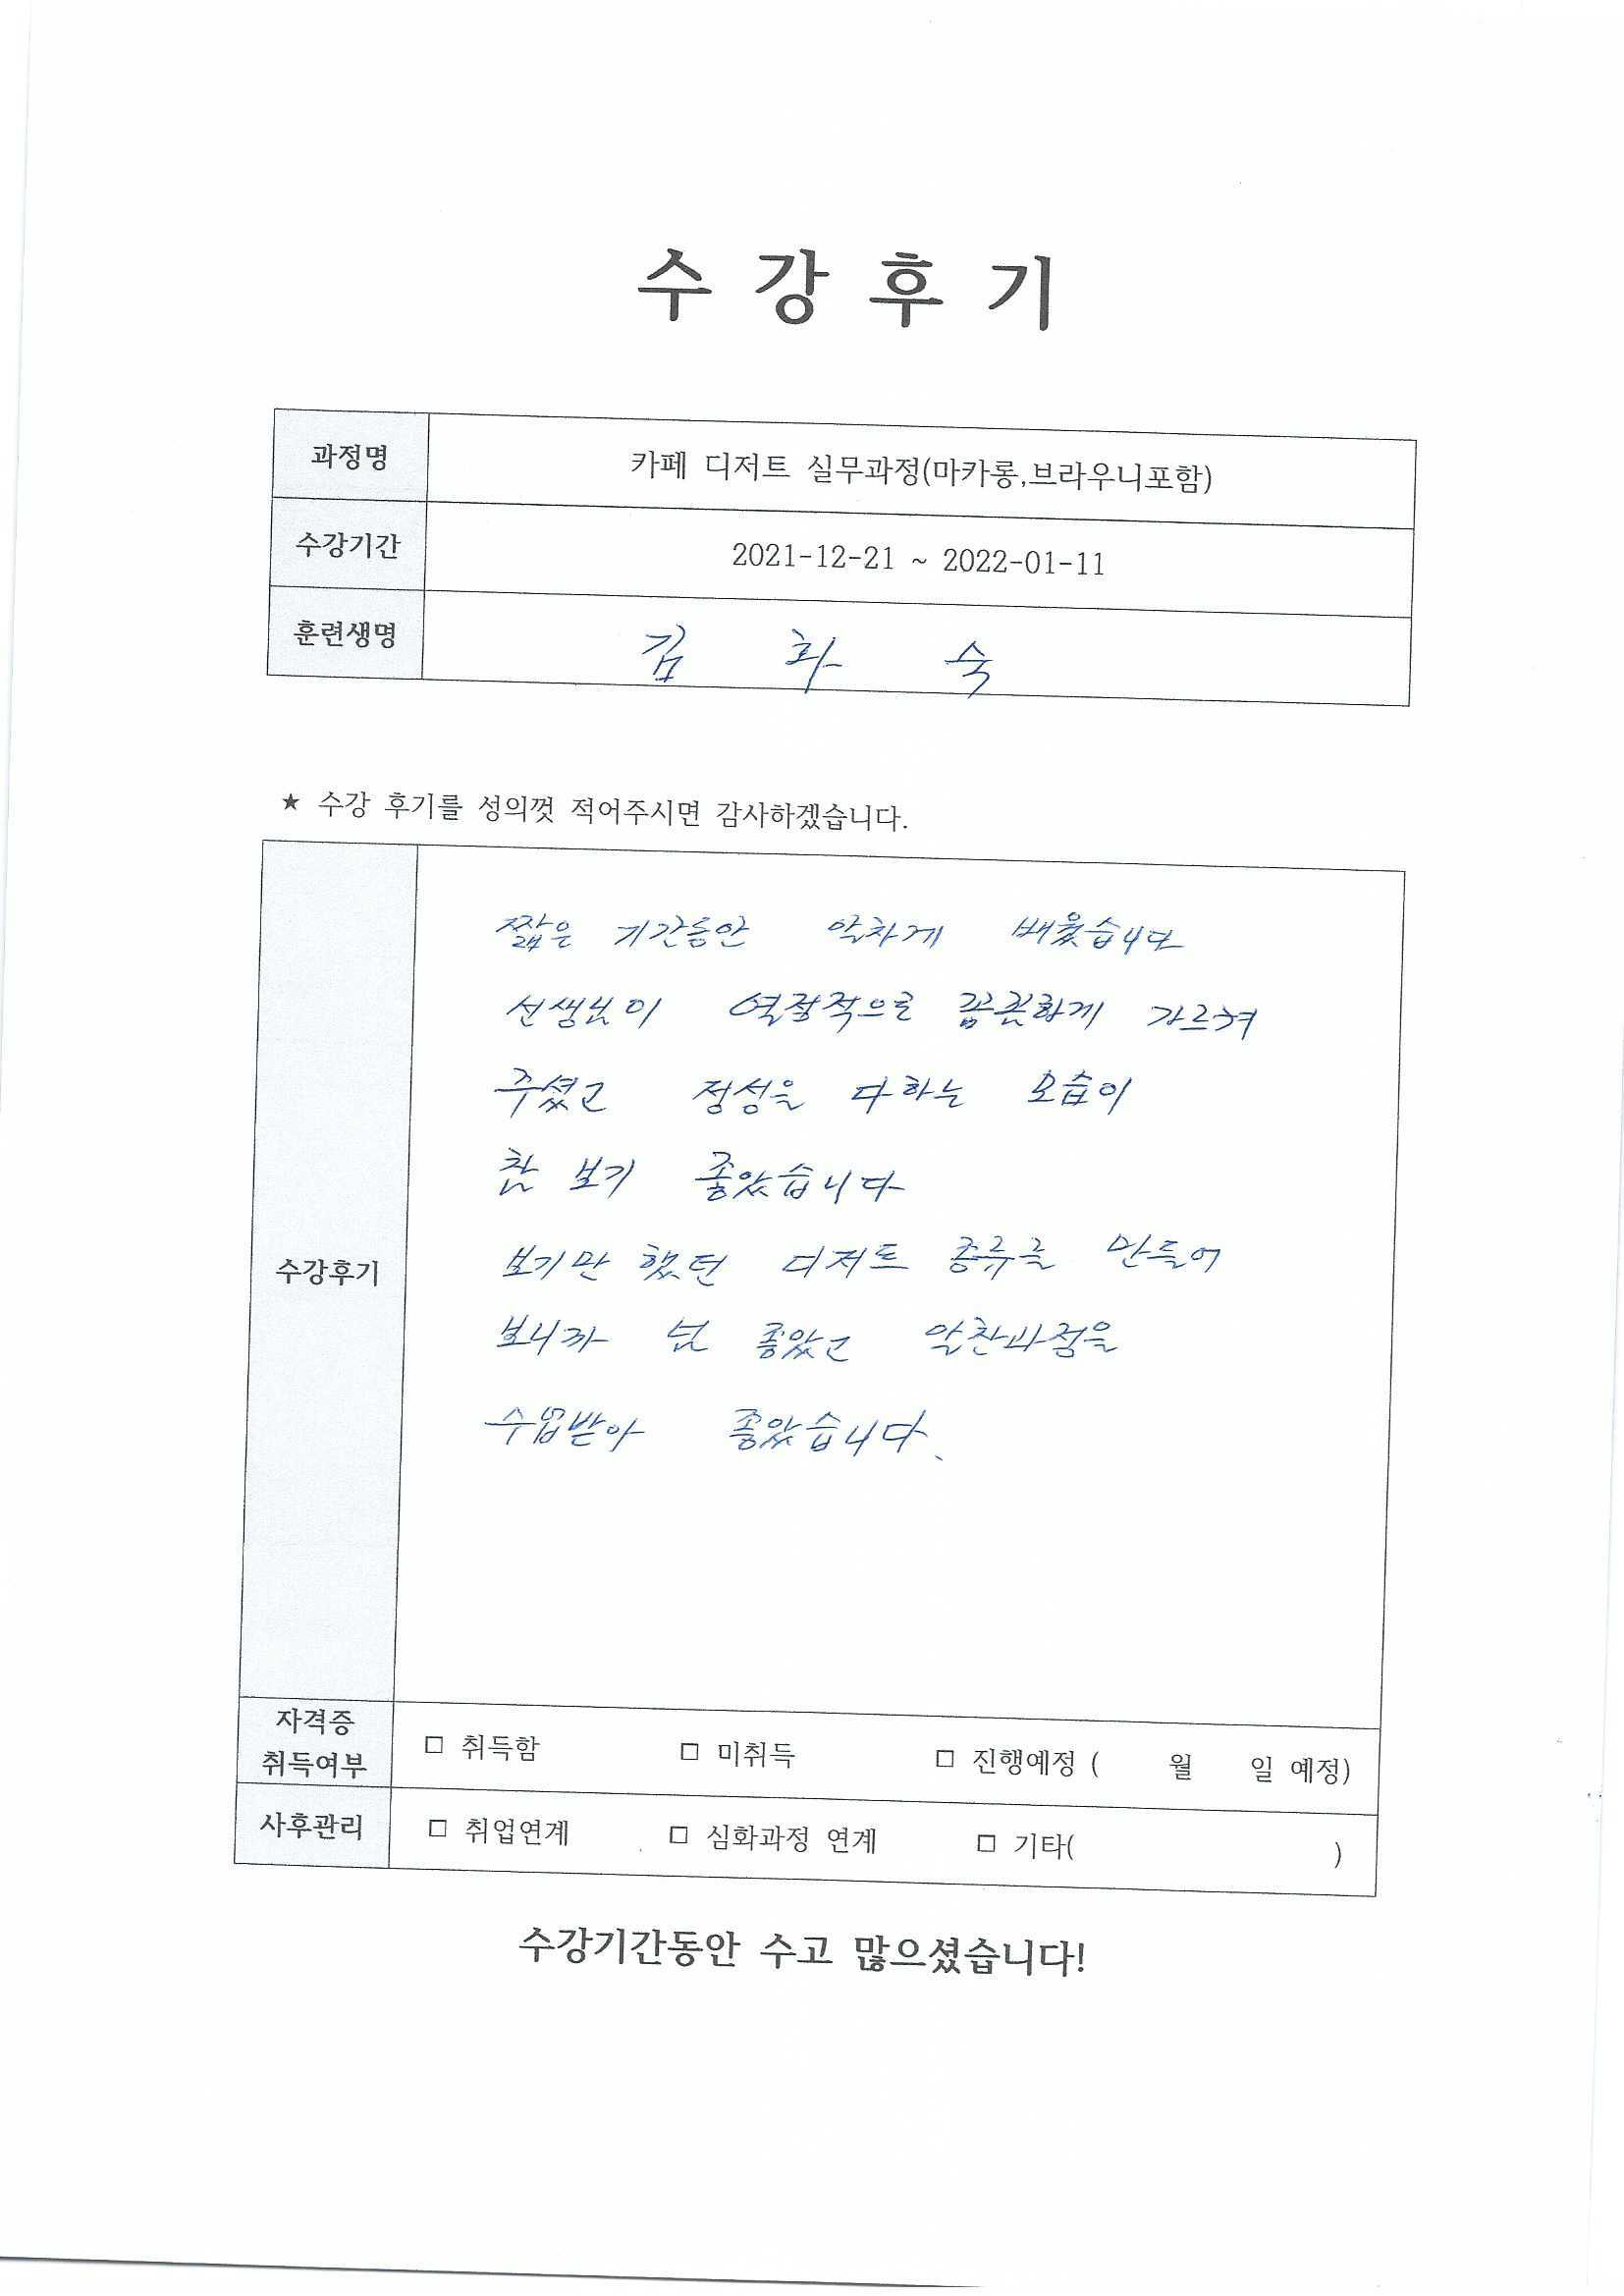 수강후기
과정명 카페 디저트 실무과정(마카롱,브라우니포함)
수강기간 2021-12-21 ~ 2022-01-11
훈련생명 김 화 숙
★ 수강 후기를 성의껏 적어주시면 감사하겠습니다.
수강후기
짧은 기간동안 알차게 배웠습니다
선생님이 열정적으로 꼼꼼하게 가르쳐
주셨고 정성을 다하는 모습이
참 보기 좋았습니다
보기만 했던 디저트 종류를 만들어
보니까 넘 좋았고 알찬과정을
수업받아 좋았습니다.
자격증
취득여부 □ 취득함 □ 미취득 □ 진행예정 ( 월 일 예정)
사후관리 □ 취업연계 □ 심화과정 연계 □ 기타( )
수강기간동안 수고 많으셨습니다!